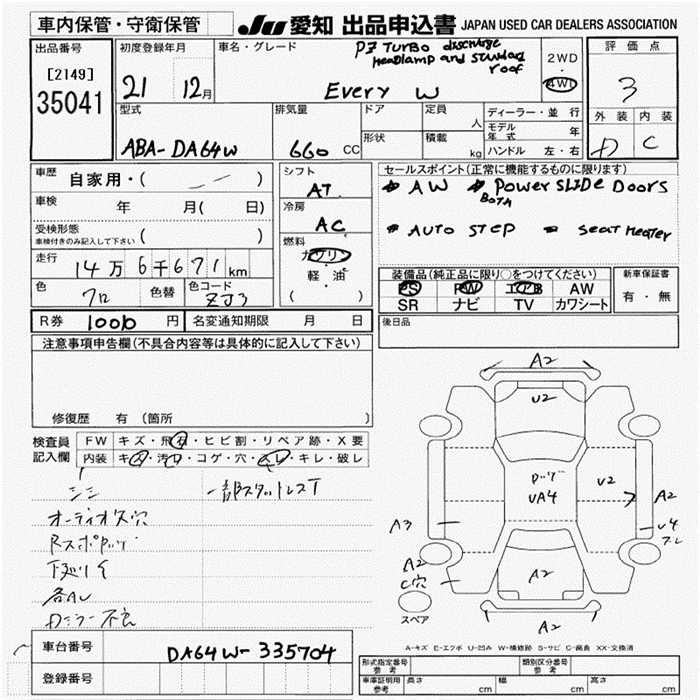 車内保管・守衛保管
JU 愛知 出品申込書 JAPAN USED CAR DEALERS ASSOCIATION
出品番号
[2149]
35041
初度登録年月
21 12月
車名・グレード
PZ TURBO discharge
Headlamp and standard
roof
Every W
2WD
4WD
評価点
3
外装 内装
D C
型式
ABA-DA64W
排気量
660 CC
ドア
形状
定員 人
積載 kg
ディーラー・並行
モデル年式 年
ハンドル 左・右
車歴 自家用・( )
車検 年 月( 日)
受検形態
車検付きのみ記入して下さい ( )
走行 14万6千671km
色 クロ 色替 色コード ZJ3
シフト
AT
冷房
AC
燃料
ガソリン
軽・油
( )
セールスポイント(正常に機能するものに限ります)
AW Both Power SLIDE Doors
AUTO STEP Seat Heater
装備品(純正品に限り○をつけてください)
PS PW エアB AW
SR ナビ TV カワシート
新車保証書
有・無
R券 10010 円 名変通知期限 月 日
後日品
注意事項申告欄(不具合内容等は具体的に記入して下さい)
修復歴 有 (箇所 )
検査員
記入欄
FW キズ・飛石・ヒビ割・リペア跡・X要
内装 キズ・汚れ・コゲ・穴・スレ・キレ・破レ
シミ 一部スタットレスT
オーディオ欠穴
下廻りサ
各AU
Dミラー不良
A2
U2
ルーフ
UA4
U2
A2
U4
A3
A2
C穴
A2
A2
スペア
A-キズ E-エクボ U-凹み W-補修跡 S-サビ C-腐食 XX-交換済
車台番号 DA64W-335704
登録番号
形式指定番号
参考
類別区分番号
車庫証明用
参考
長さ cm 幅 cm 高さ cm